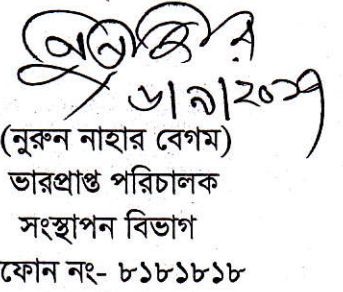 ৬|৯|২০১৭
(নুরুন নাহার বেগম)
ভারপ্রাপ্ত পরিচালক
সংস্থাপন বিভাগ
ফোন নং- ৮১৮১৮১৮